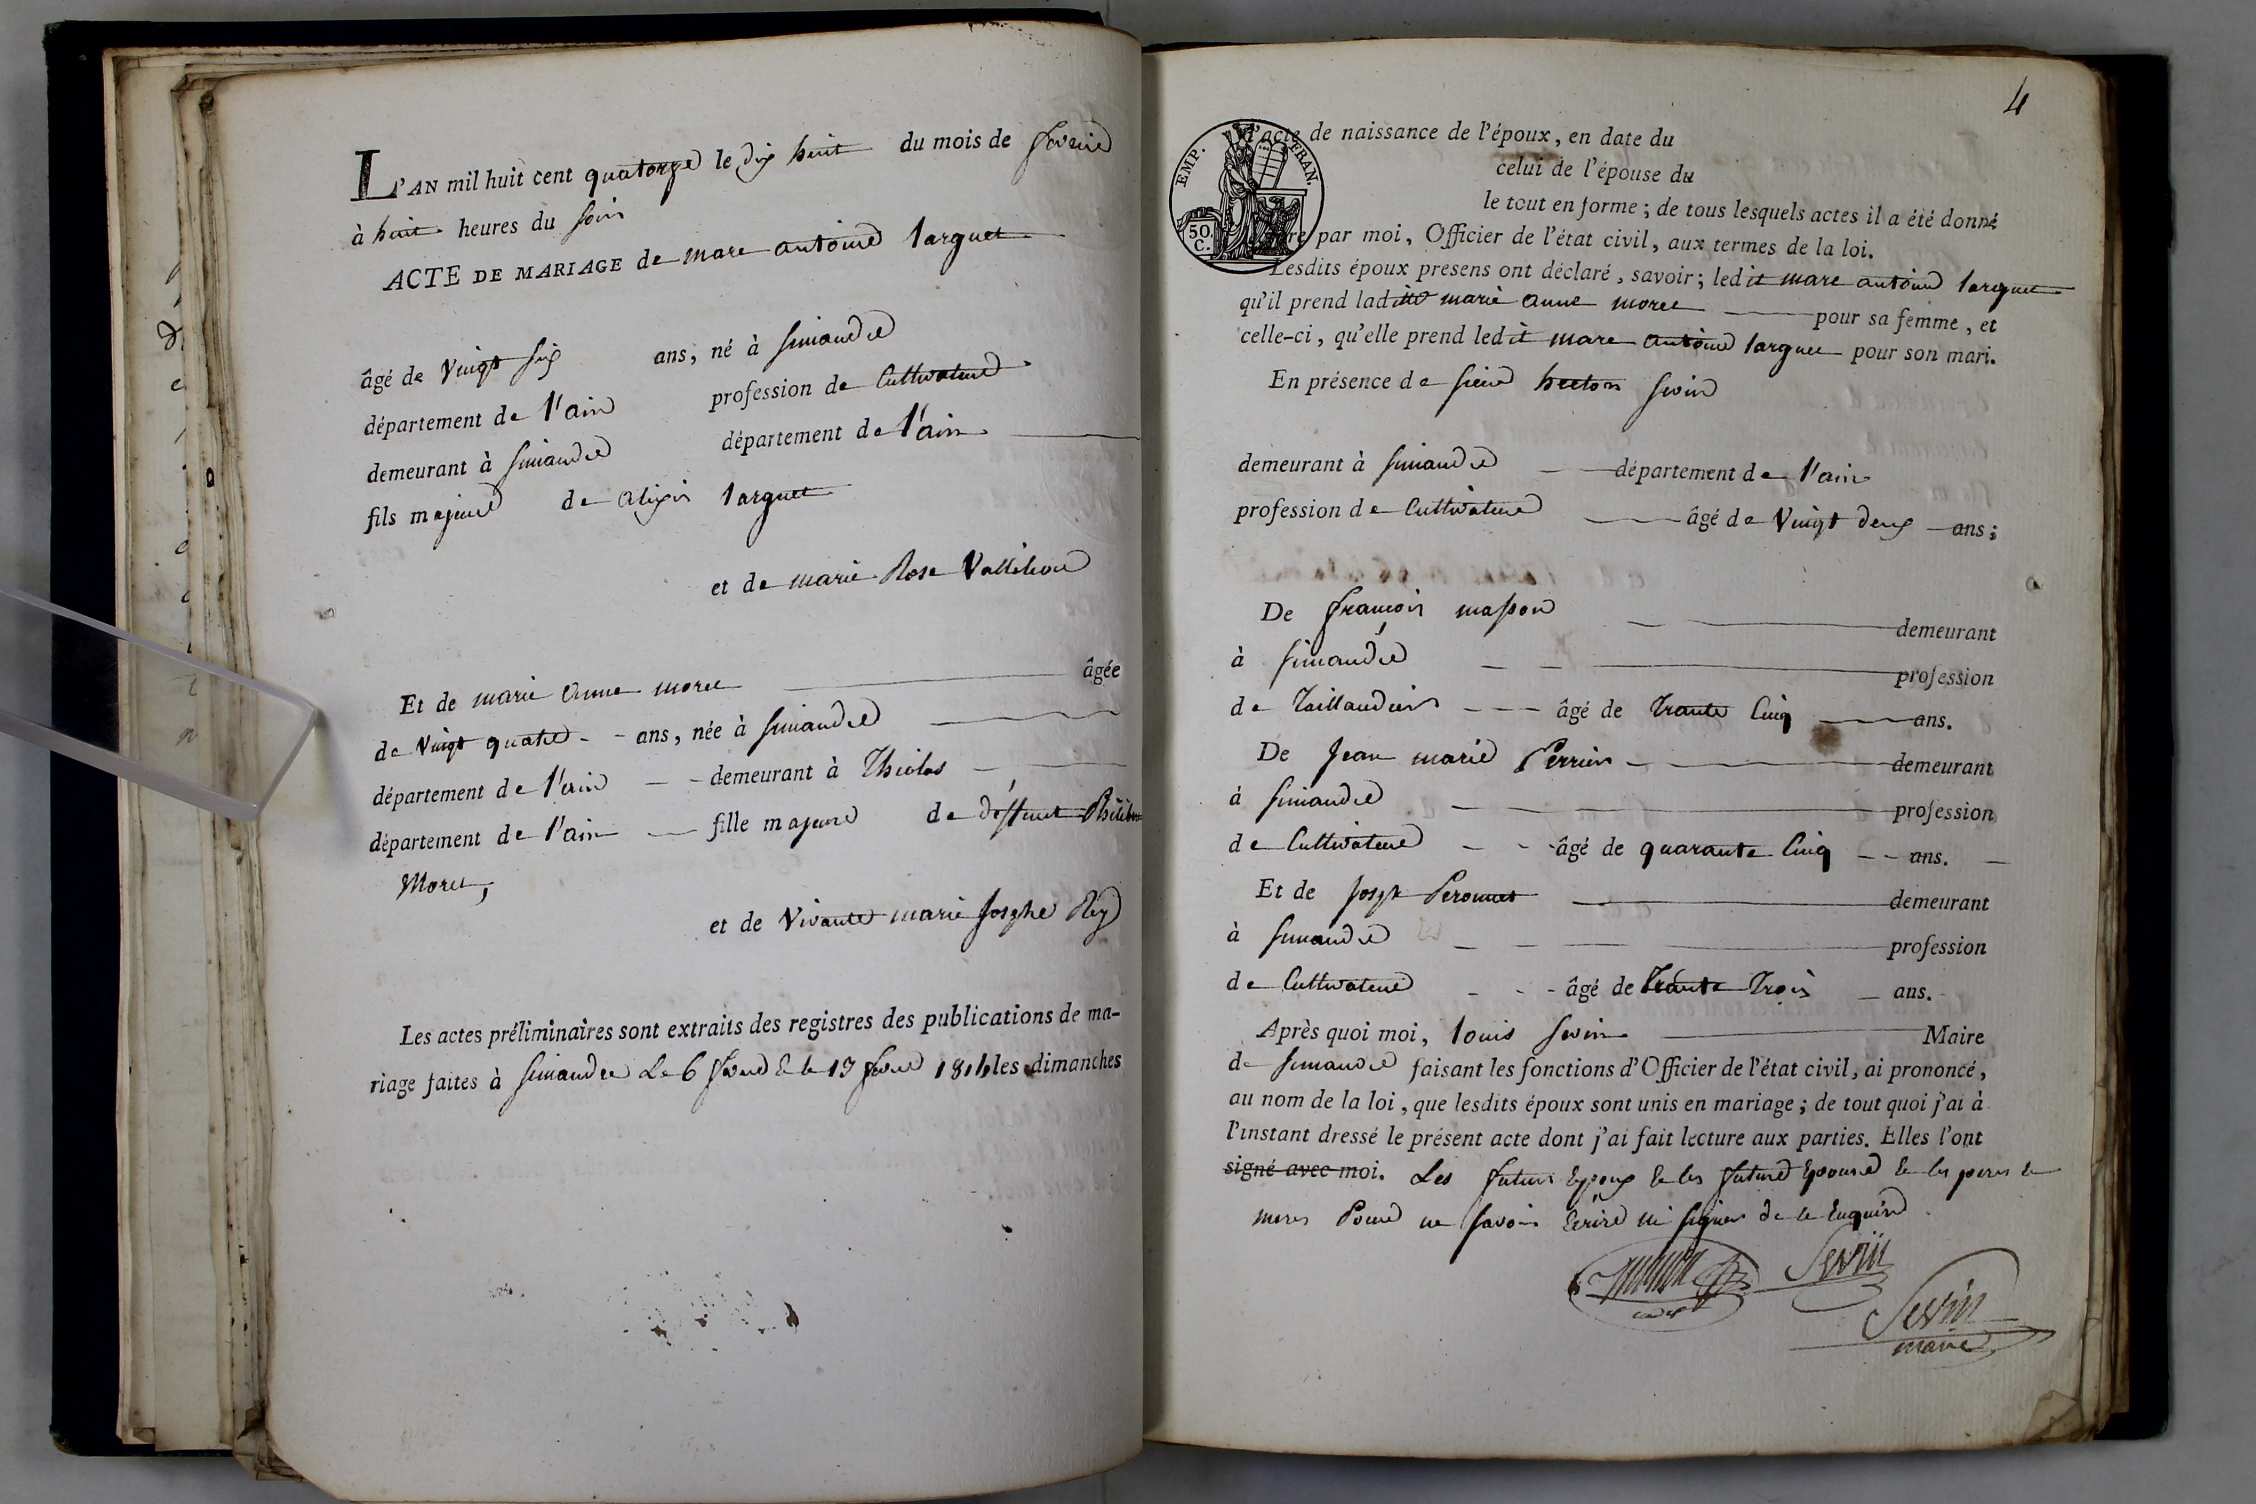 L'AN mil huit cent quatorze le dix huit du mois de fevrie
à huit heures du soir
ACTE DE MARIAGE de marc antoine larguet
âgé de vingt six ans, né à simandre
département de l'ain profession de Cultivateur
demeurant à simandre département de l'ain
fils majeur de alixis larguet
et de marie Rose
Et de marie anne moret âgée
de vingt quatre ans, née à simandre
département de l'ain demeurant à
département de l'ain fille majeure de deffunt
Moret,
et de vivante marie Josephe Rey
Les actes préliminaires sont extraits des registres des publications de ma-
riage faites à simandre Le 6 & le 13 1814 les dimanches
4
EMP. FRAN.
50. C.
l'acte de naissance de l'époux, en date du
celui de l'épouse du
le tout en forme ; de tous lesquels actes il a été donné
par moi, Officier de l'état civil, aux termes de la loi.
Lesdits époux présens ont déclaré, savoir ; ledit marc antoine larguet
qu'il prend ladite marie anne moret pour sa femme, et
celle-ci, qu'elle prend ledit marc antoine larguet pour son mari.
En présence de
demeurant à simandre département de l'ain
profession de Cultivateur âgé de vingt deux ans ;
De françois masson demeurant
à simandre profession
de Taillandier âgé de trante Cinq ans.
De Jean marie Perrin demeurant
à simandre profession
de Cultivateur âgé de quarante Cinq ans.
Et de Josept Peronnet demeurant
à simandre profession
de Cultivateur âgé de trante trois ans.
Après quoi moi, louis sevin Maire
de simandre faisant les fonctions d'Officier de l'état civil, ai prononcé,
au nom de la loi, que lesdits époux sont unis en mariage ; de tout quoi j'ai à
l'instant dressé le présent acte dont j'ai fait lecture aux parties. Elles l'ont
signé avec moi. Les futurs Epoux & les future Epouse & les peres &
meres Pour ne savoir Ecrire ni signer de ce Enquis
Sevin
Sevin
maire